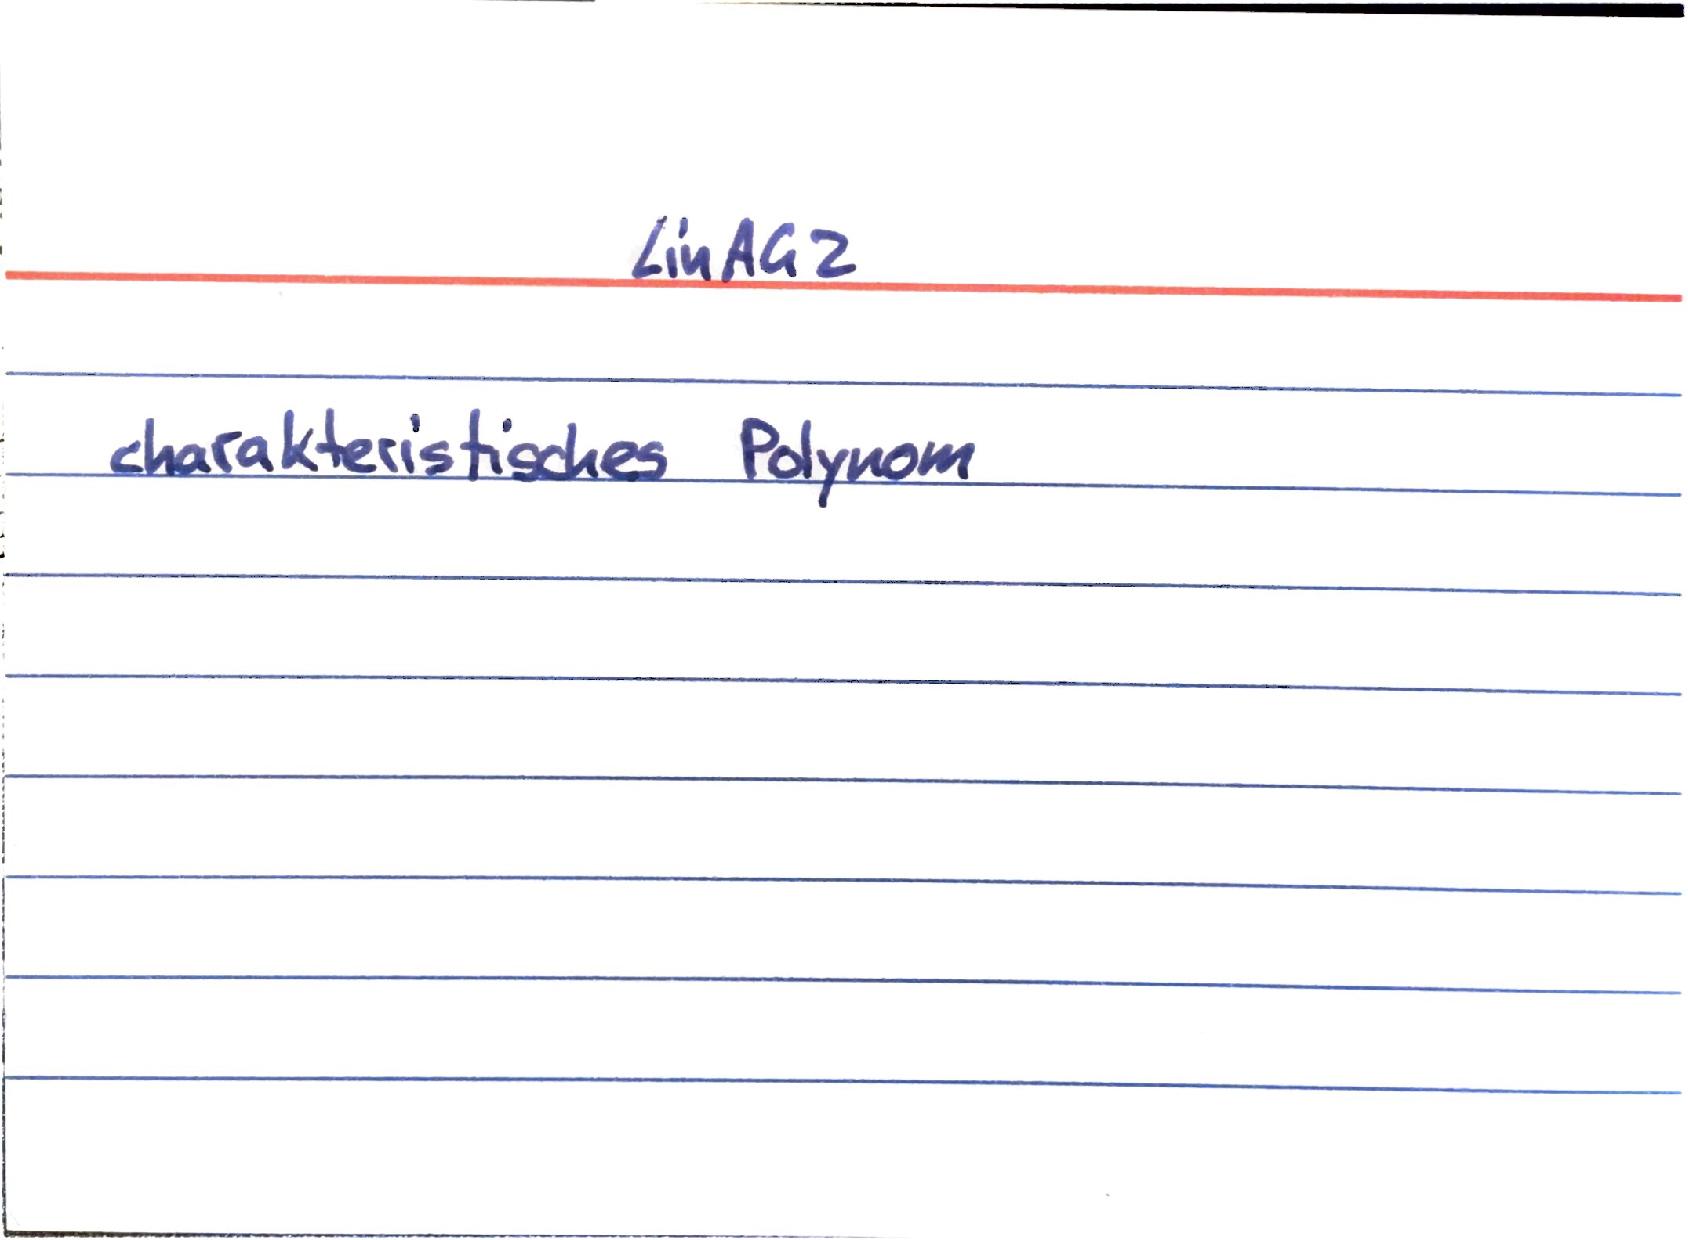 LinAG 2
charakteristisches Polynom